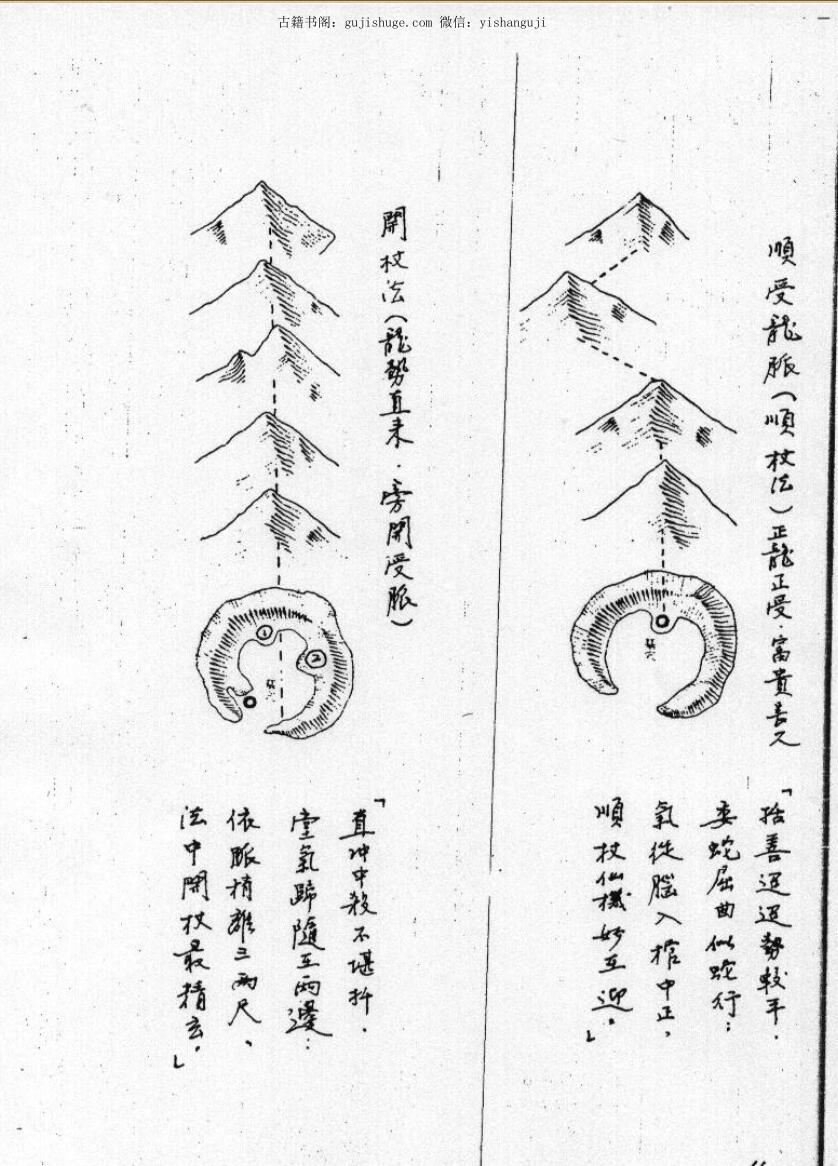 古籍书阁: gujishuge.com 微信: yishanguji
順受龍脈(順杖法)正龍正受.富貴久
穴
「善迢迢勢較平.
委蛇屈曲似蛇行;
氣從腦入棺中正,
順杖仙機妙在迎。」
開杖法(龍勢直来.旁開受脈)
①
②
穴
「直冲中殺不堪扦.
堂氣歸隨在兩邊:
依脈稍離三兩尺、
法中開杖最精玄。」